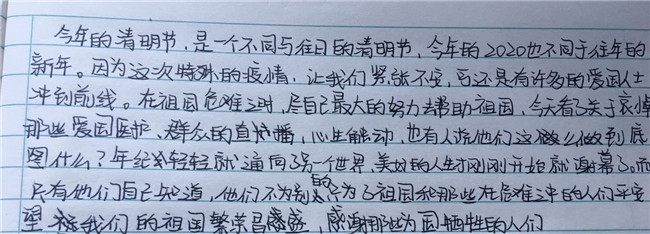 今年的清明节，是一个不同与往日的清明节，今年的2020也不同于往年的
新年。因为这次特殊的疫情，让我们紧张不安，可还是有许多的爱国人士
冲到前线。在祖国危难之时，尽自己最大的努力去帮助祖国，今天看了关于哀悼
那些爱国医护、群众的直播，心生触动，也有人说他们这做么做到底
图什么？年纪轻轻就通向了另一个世界，美好的人生才刚刚开始就谢幕了。而
只有他们自己知道，他们不为别的只为了祖国和那些在危难之中的人们平安
望 我们的祖国繁荣昌盛，感谢那些为国牺牲的人们